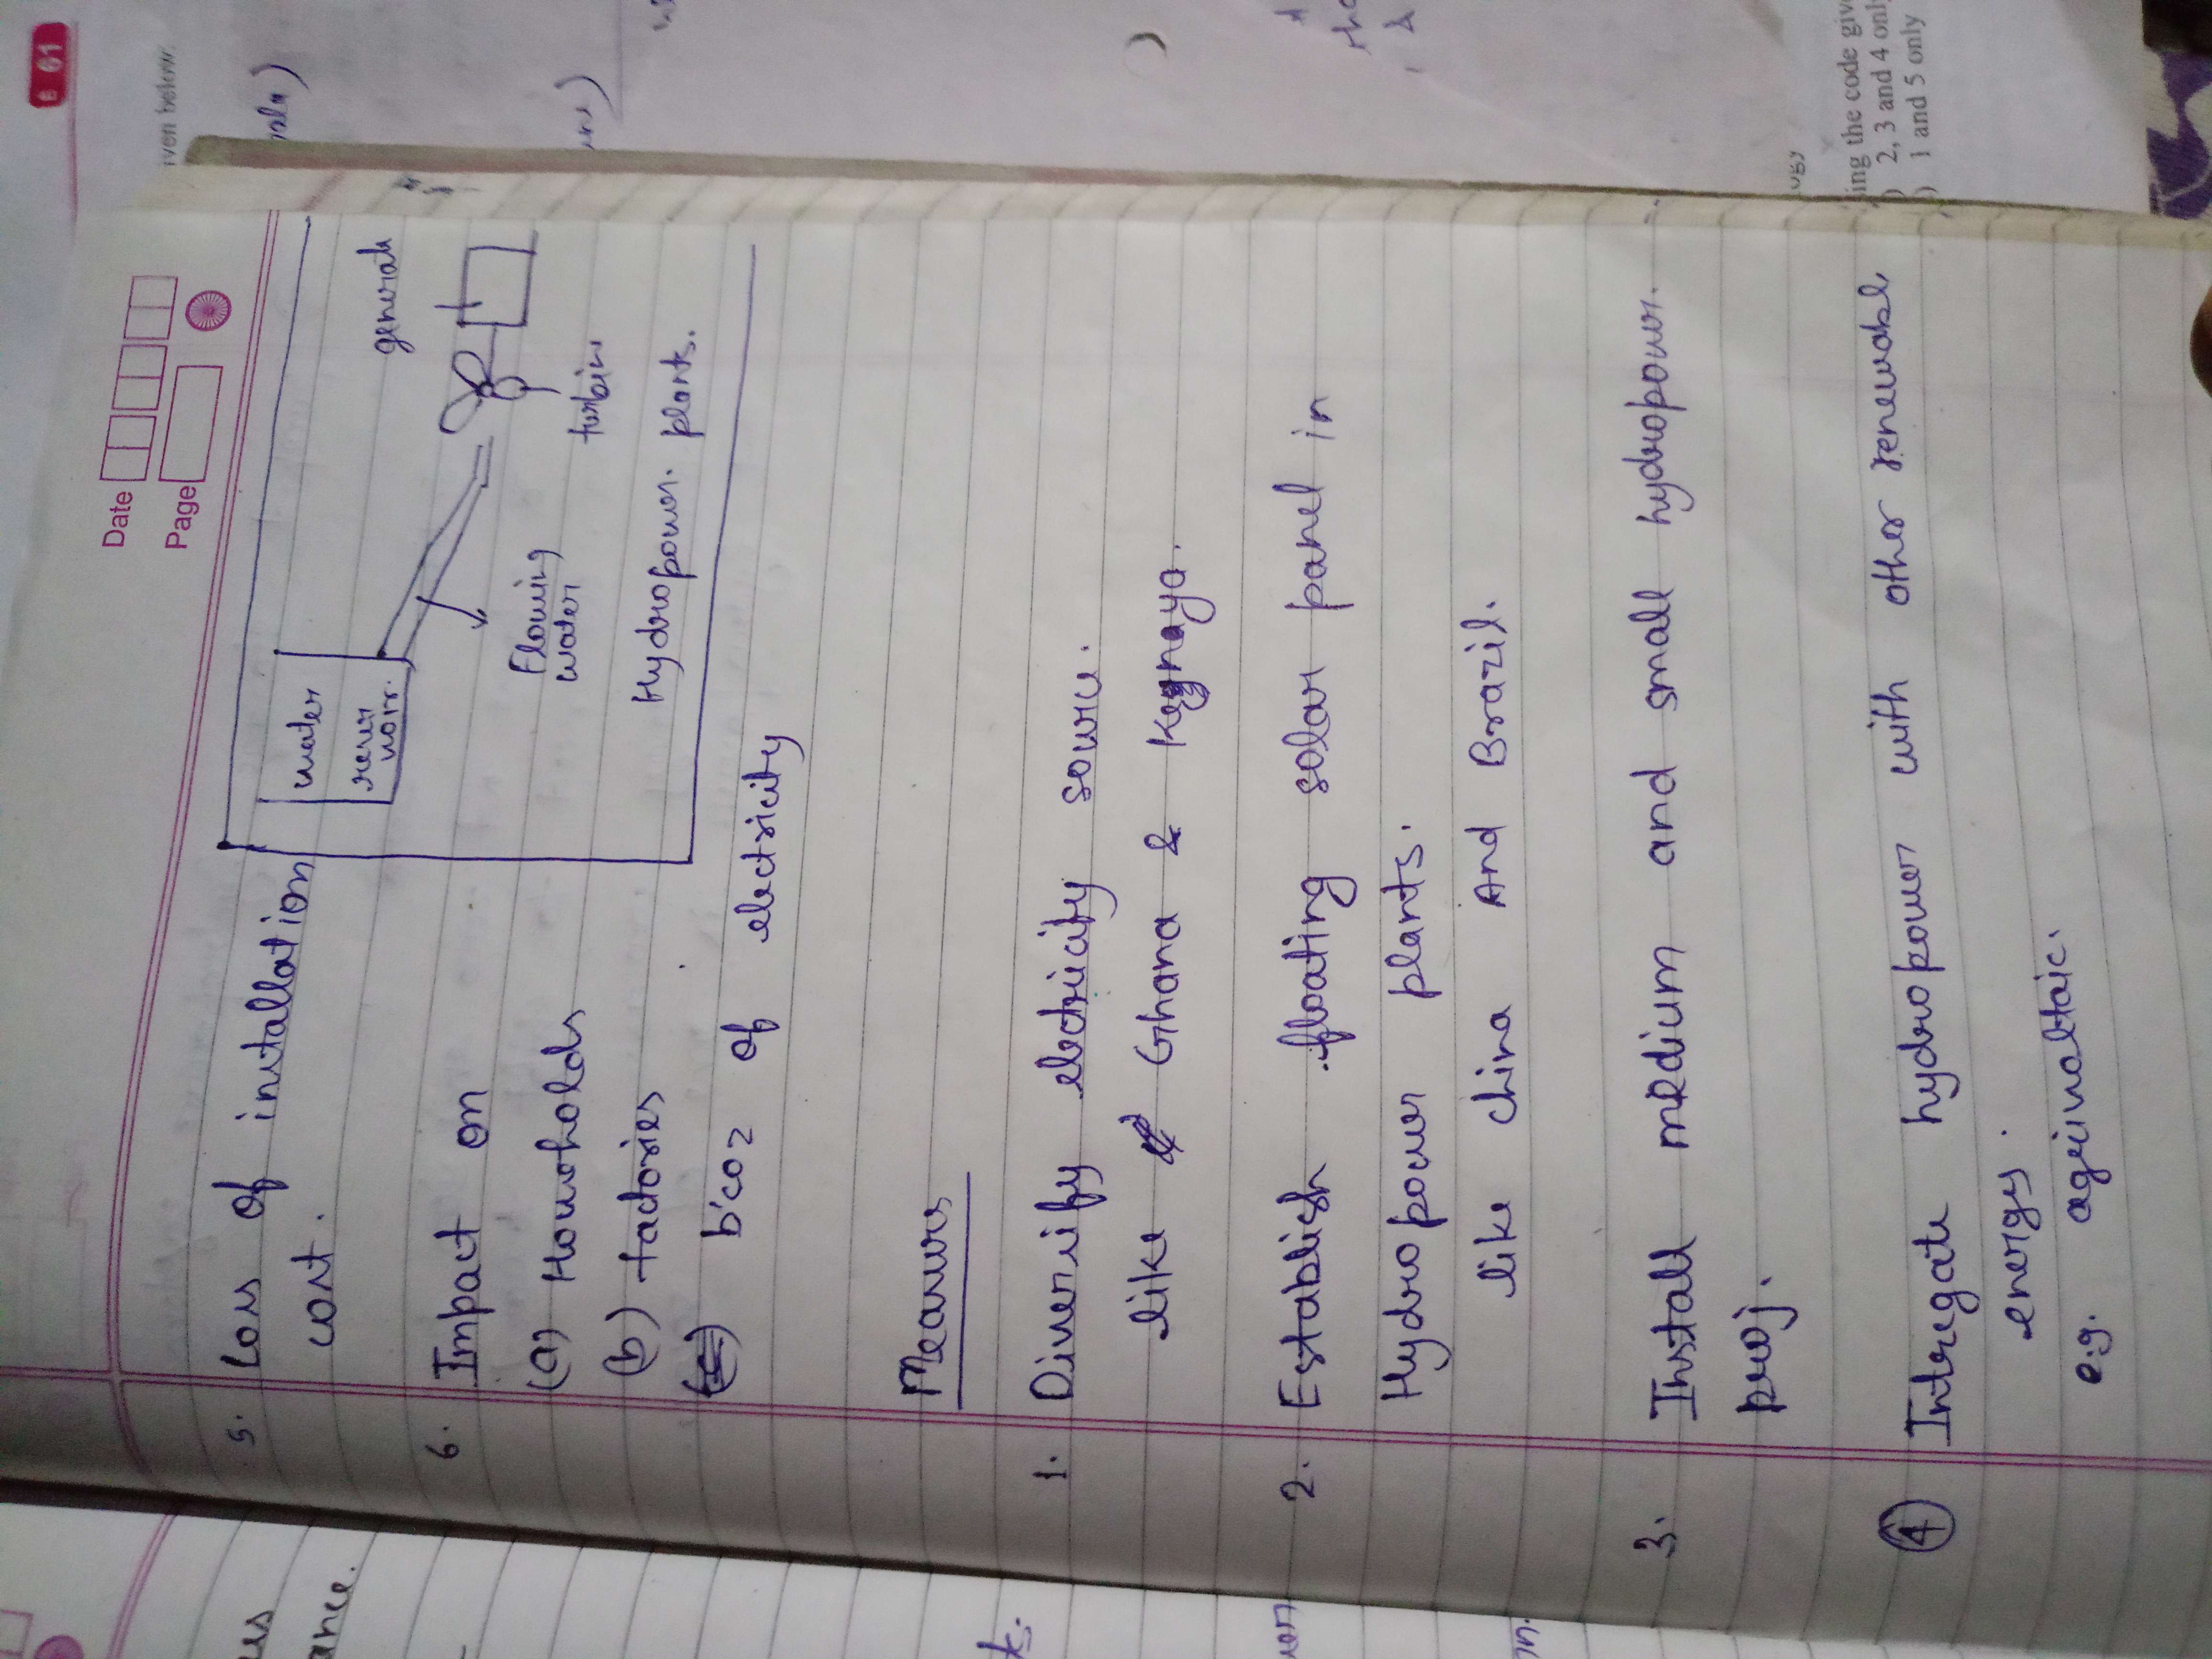 Date
Page
5. Loss of installation
cost.
water
reser
voir.
generat
Flowing
water
turbin
Hydropower. plants.
6. Impact on
(a) Households
(b) factories
b'coz of electricity
Measures
1. Diversify electricity source.
like Ghana & Kegnaya.
2. Establish floating solar panel in
Hydropower plants.
like china And Brazil.
3. Install medium and small hydropower.
proj.
4 Intregate hydropower with other renewable
energy.
e.g. agrivoltaic.
iven below.
ing the code giv
2, 3 and 4 only
1 and 5 only
ogy
61